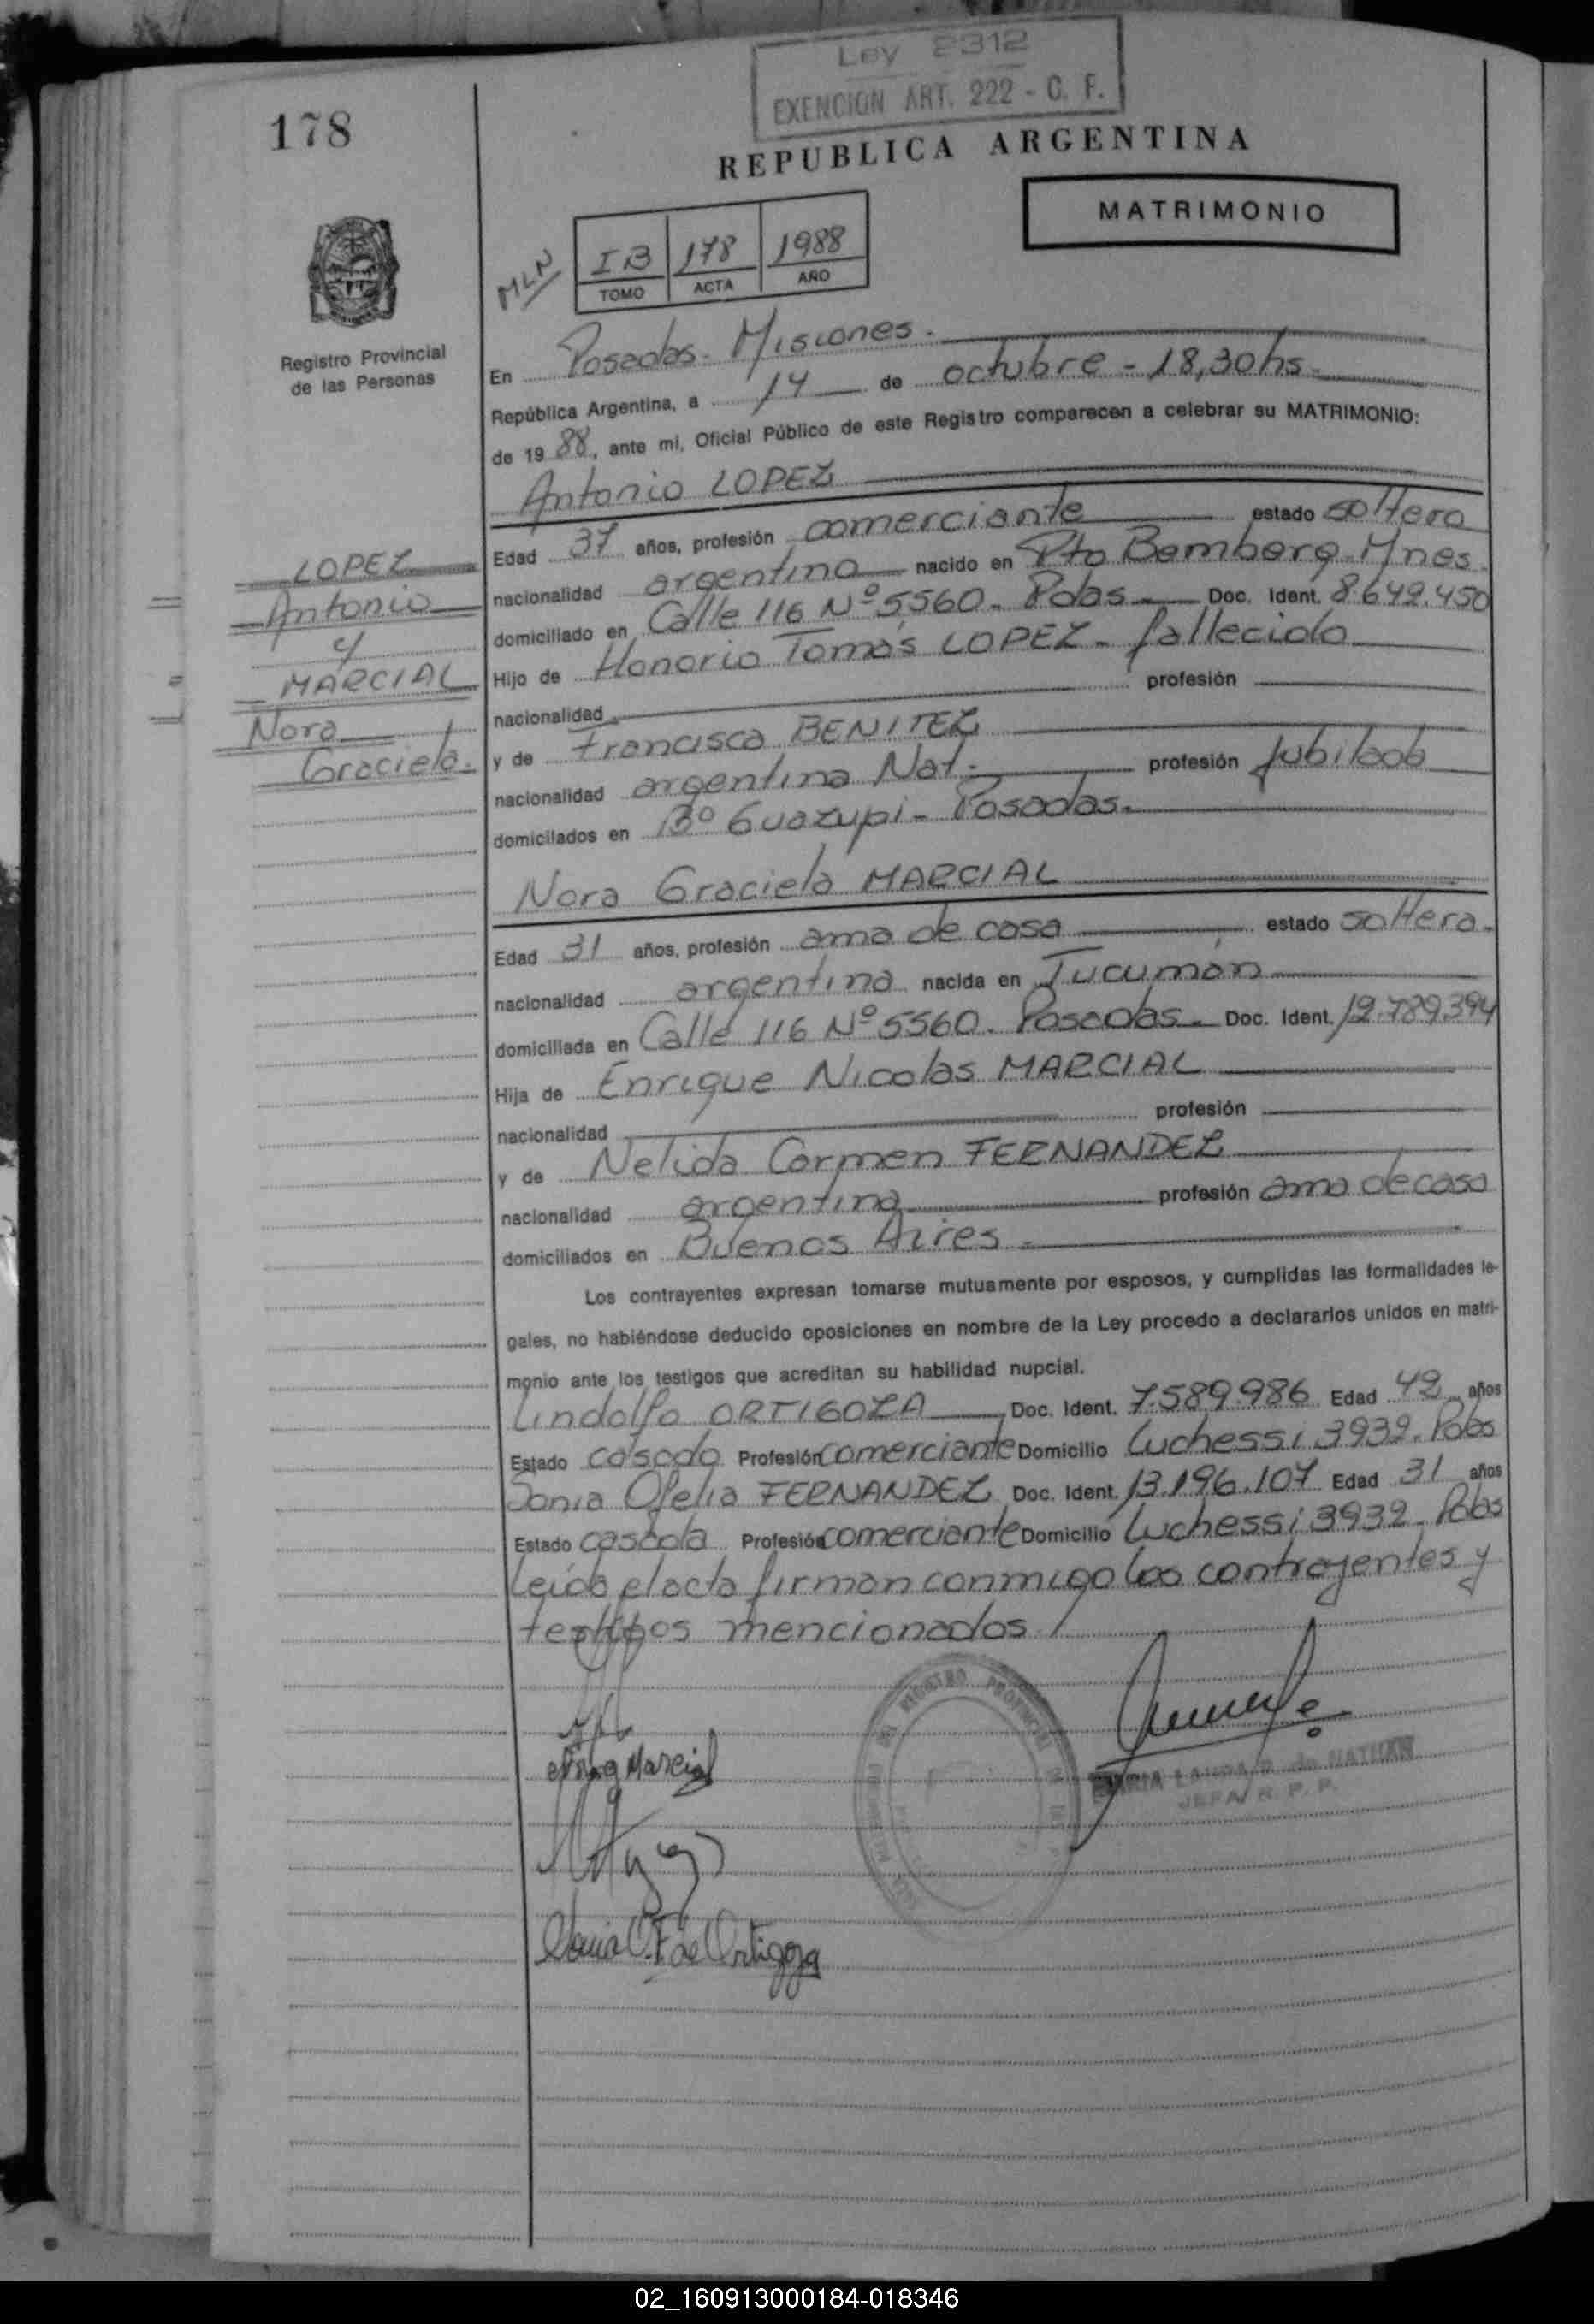 Ley 2312
EXENCION ART. 222 - C. F.
178
REPUBLICA ARGENTINA
MATRIMONIO
MLN
IB 178 1988
TOMO ACTA AÑO
Registro Provincial
de las Personas
En Posadas - Misiones.
República Argentina, a 14 de octubre - 18,30hs.
de 1988, ante mí, Oficial Público de este Registro comparecen a celebrar su MATRIMONIO:
Antonio LOPEZ
LOPEZ
Antonio
y
MARCIAL
Nora
Graciela.
Edad 37 años, profesión comerciante estado soltero
nacionalidad argentino nacido en Pto Bemberg - Mnes.
domiciliado en Calle 116 Nº 5560 - Pdas - Doc. Ident. 8.649.450
Hijo de Honorio Tomás LOPEZ - fallecido
nacionalidad profesión
y de Francisca BENITEZ
nacionalidad argentina Nat. profesión Jubilada
domiciliados en Bº Guazupi - Posadas.
Nora Graciela MARCIAL
Edad 31 años, profesión ama de casa estado soltera.
nacionalidad argentina nacida en Tucumán
domiciliada en Calle 116 Nº 5560. Posadas. Doc. Ident. 12.789.394
Hija de Enrique Nicolas MARCIAL
nacionalidad profesión
y de Nelida Carmen FERNANDEZ
nacionalidad argentina profesión ama de casa
domiciliados en Buenos Aires.
Los contrayentes expresan tomarse mutuamente por esposos, y cumplidas las formalidades le-
gales, no habiéndose deducido oposiciones en nombre de la Ley procedo a declararlos unidos en matri-
monio ante los testigos que acreditan su habilidad nupcial.
Lindolfo ORTIGOZA Doc. Ident. 7.589.986 Edad 42 años
Estado casado Profesión comerciante Domicilio Luchessi 3932. Pdas
Sonia Ofelia FERNANDEZ Doc. Ident. 13.196.107 Edad 31 años
Estado casada Profesión comerciante Domicilio Luchessi 3932. Pdas
Leída el acta firman conmigo los contrayentes y
testigos mencionados.
Nora G Marcial
Sonia O. F de Ortigoza
REGISTRO PROVINCIAL
MARIA LAURA de NATHAN
JEFA R. P. P.
02_160913000184-018346